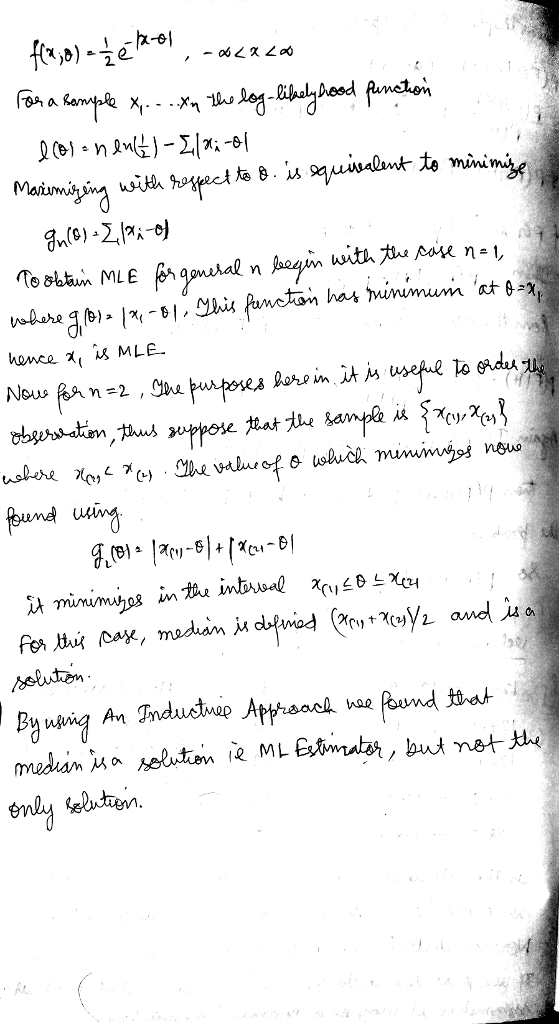 f(x;θ) = 1/2 e^-|x-θ| , -∞<x<∞
For a sample x₁ ....xₙ the log-likelyhood function
l(θ) = n ln(1/2) - Σ|xᵢ-θ|
Maximizing with respect to θ. is equivalent to minimize
gₙ(θ) = Σ|xᵢ-θ|
To obtain MLE for general n begin with the case n=1,
where g₁(θ) = |x₁-θ|. This function has minimum at θ=x₁,
hence x₁ is MLE
Now for n=2, The purposes herein it is useful to order the
observation, thus suppose that the sample is {x(1), x(2)}
where x(1) < x(2). The value of θ which minimizes now
found using.
g₂(θ) = |x(1)-θ| + |x(2)-θ|
it minimizes in the interval x(1) ≤ θ ≤ x(2)
For this case, median is defined (x(1)+x(2))/2 and is a
solution.
By using An Inductive Approach we found that
median is a solution ie ML Estimator, but not the
only solution.